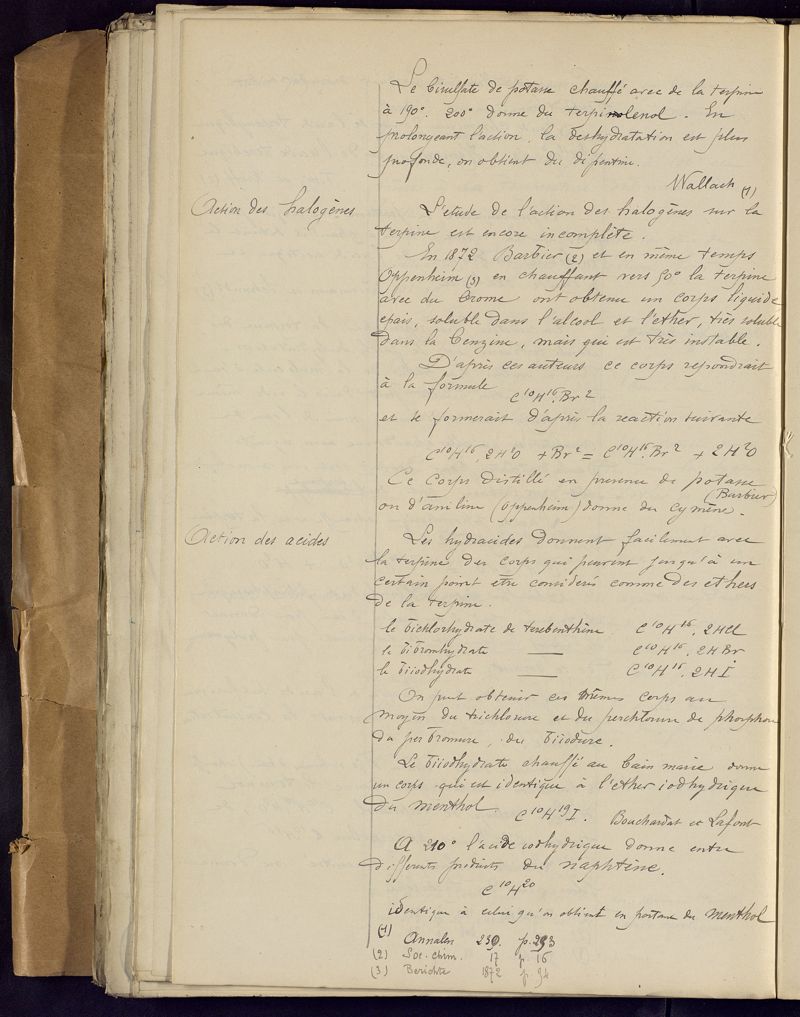 Le bisulfate de potasse chauffé avec de la terpine
à 190°. 200° donne du terpinolenol. En
prolongeant l'action, la deshydratation est plus
profonde, on obtient du dipentine.
Wallach (1)
Action des halogènes
L'étude de l'action des halogènes sur la
terpine est encore incomplète.
En 1872 Barbier (2) et en même temps
Oppenheim (3) en chauffant vers 50° la terpine
avec du brome ont obtenu un corps liquide
épais, soluble dans l'alcool et l'ether, très soluble
dans la benzine, mais qui est très instable.
D'après ces auteurs ce corps repondrait
à la formule
C¹⁰H¹⁶.Br²
et se formerait d'après la reaction suivante
C¹⁰H¹⁶, 2H²O + Br² = C¹⁰H¹⁶.Br² + 2H²O
Ce corps distillé en presence de potasse
(Barbier)
ou d'aniline (Oppenheim) donne du cymène.
Action des acides
Les hydracides donnent facilement avec
la terpine des corps qui peuvent jusqu'à un
certain point etre considerés comme des ethers
de la terpine.
le bichlorhydrate de terebenthène C¹⁰H¹⁶, 2HCl
le bibromhydrate — C¹⁰H¹⁶, 2HBr
le biiodhydrate — C¹⁰H¹⁶, 2HI
On peut obtenir ces mêmes corps au
moyen du trichlorure et du perchlorure de phosphore
du perbromure, du biiodure.
Le biiodhydrate chauffé au bain marie donne
un corps qui est identique à l'ether iodhydrique
du menthol C¹⁰H¹⁹I. Bouchardat et Lafont
A 210° l'acide iodhydrique donne entre
differents produits du naphtène.
C¹⁰H²⁰
identique à celui qu'on obtient en partant du menthol
(1) Annalen 239. p. 293
(2) Soc. chim. 17 p. 16
(3) Berichte 1872 p. 94